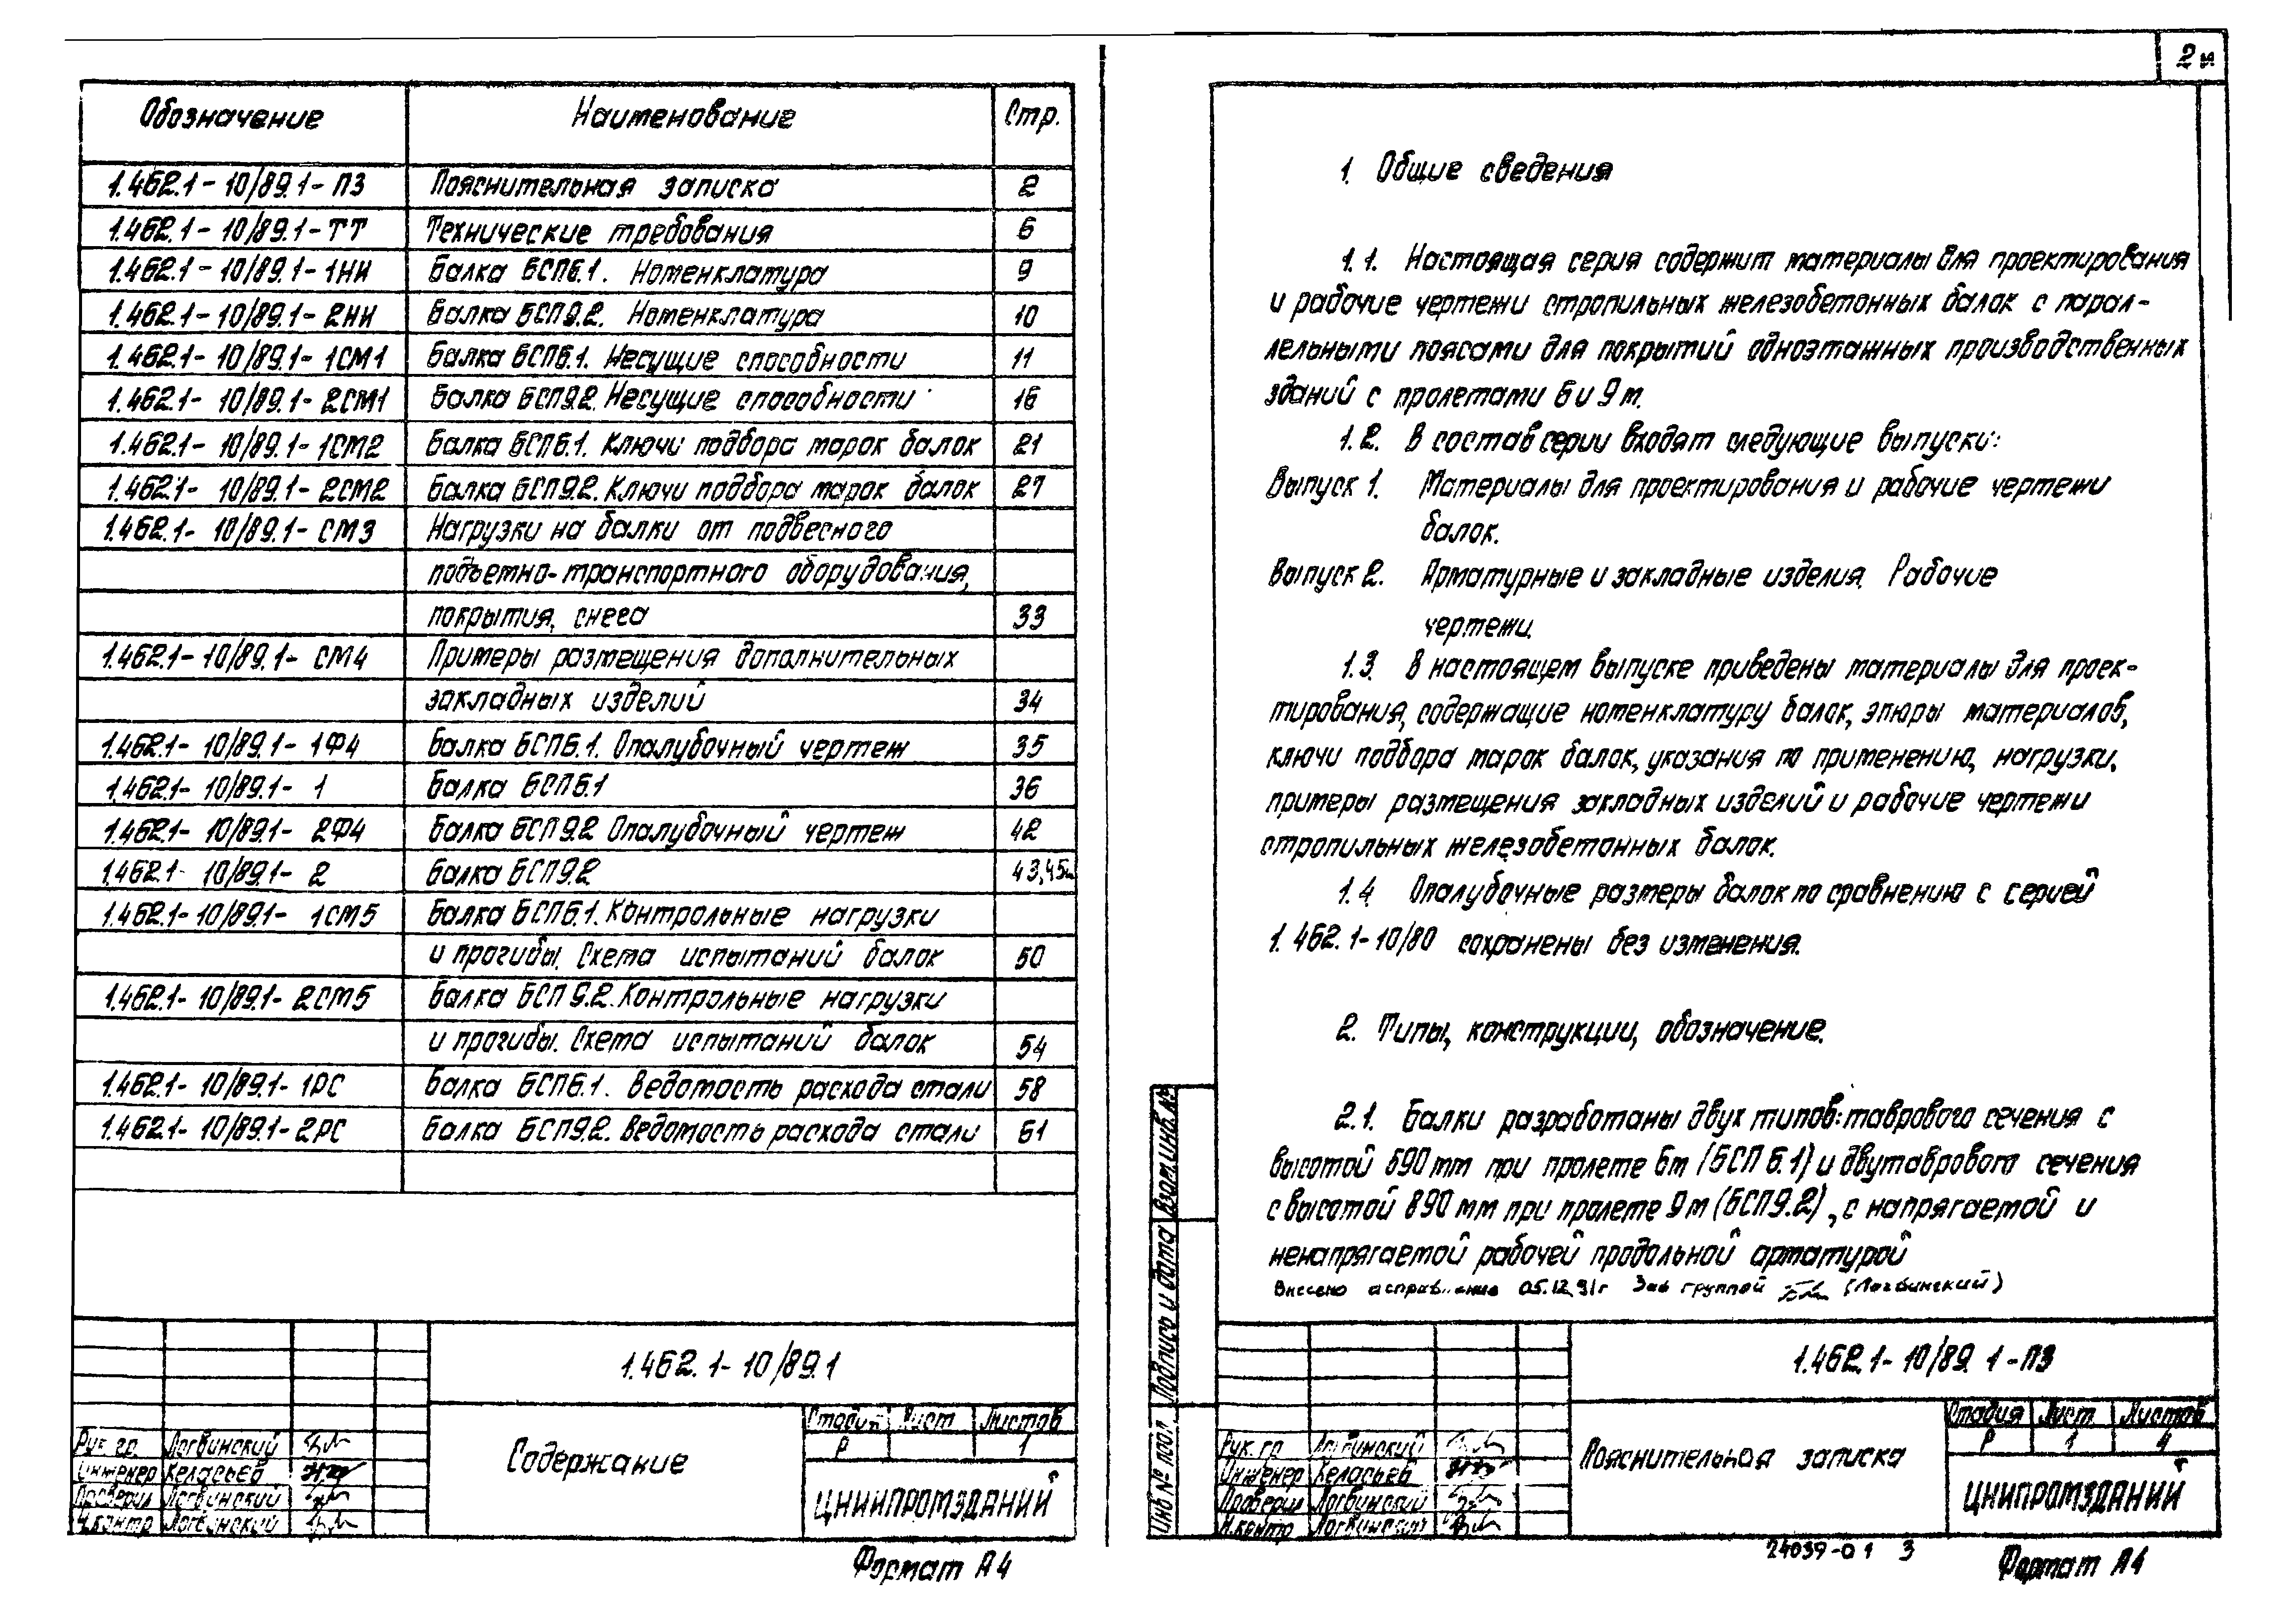 Обозначение Наименование Стр.
1.462.1-10/89.1-ПЗ Пояснительная записка 2
1.462.1-10/89.1-ТТ Технические требования 6
1.462.1-10/89.1-1НИ Балка БСП6.1. Номенклатура 9
1.462.1-10/89.1-2НИ Балка БСП9.2. Номенклатура 10
1.462.1-10/89.1-1СМ1 Балка БСП6.1. Несущие способности 11
1.462.1-10/89.1-2СМ1 Балка БСП9.2. Несущие способности 16
1.462.1-10/89.1-1СМ2 Балка БСП6.1. Ключи подбора марок балок 21
1.462.1-10/89.1-2СМ2 Балка БСП9.2. Ключи подбора марок балок 27
1.462.1-10/89.1-СМ3 Нагрузки на балки от подвесного
подъемно-транспортного оборудования,
покрытия, снега 33
1.462.1-10/89.1-СМ4 Примеры размещения дополнительных
закладных изделий 34
1.462.1-10/89.1-1Ф4 Балка БСП6.1. Опалубочный чертеж 35
1.462.1-10/89.1-1 Балка БСП6.1 36
1.462.1-10/89.1-2Ф4 Балка БСП9.2 Опалубочный чертеж 42
1.462.1-10/89.1-2 Балка БСП9.2 43,45и
1.462.1-10/89.1-1СМ5 Балка БСП6.1. Контрольные нагрузки
и прогибы. Схема испытаний балок 50
1.462.1-10/89.1-2СМ5 Балка БСП9.2. Контрольные нагрузки
и прогибы. Схема испытаний балок 54
1.462.1-10/89.1-1РС Балка БСП6.1. Ведомость расхода стали 58
1.462.1-10/89.1-2РС Балка БСП9.2. Ведомость расхода стали 61
1.462.1-10/89.1
Содержание
Стадия Лист Листов
Р 1
ЦНИИПРОМЗДАНИЙ
Рук. гр. Логвинский
Инженер Келасьев
Проверил Логвинский
Н.контр Логвинский
Формат А4
2и
1. Общие сведения
1.1. Настоящая серия содержит материалы для проектирования
и рабочие чертежи стропильных железобетонных балок с парал-
лельными поясами для покрытий одноэтажных производственных
зданий с пролетами 6 и 9 м.
1.2. В состав серии входят следующие выпуски:
Выпуск 1. Материалы для проектирования и рабочие чертежи
балок.
Выпуск 2. Арматурные и закладные изделия. Рабочие
чертежи.
1.3. В настоящем выпуске приведены материалы для проек-
тирования, содержащие номенклатуру балок, эпюры материалов,
ключи подбора марок балок, указания по применению, нагрузки,
примеры размещения закладных изделий и рабочие чертежи
стропильных железобетонных балок.
1.4. Опалубочные размеры балок по сравнению с серией
1.462.1-10/80 сохранены без изменения.
2. Типы, конструкции, обозначение.
2.1. Балки разработаны двух типов: таврового сечения с
высотой 590 мм при пролете 6 м (БСП 6.1) и двутаврового сечения
с высотой 890 мм при пролете 9 м (БСП9.2), с напрягаемой и
ненапрягаемой рабочей продольной арматурой
Внесено исправление 05.12.91г Зав группой (Логвинский)
Инв № подл Подпись и дата Взам.инв.№
1.462.1-10/89.1-ПЗ
Пояснительная записка
Стадия Лист Листов
Р 1 4
ЦНИИПРОМЗДАНИЙ
Рук. гр Логвинский
Инженер Келасьев
Проверил Логвинский
Н.контр Логвинский
24039-01 3
Формат А4